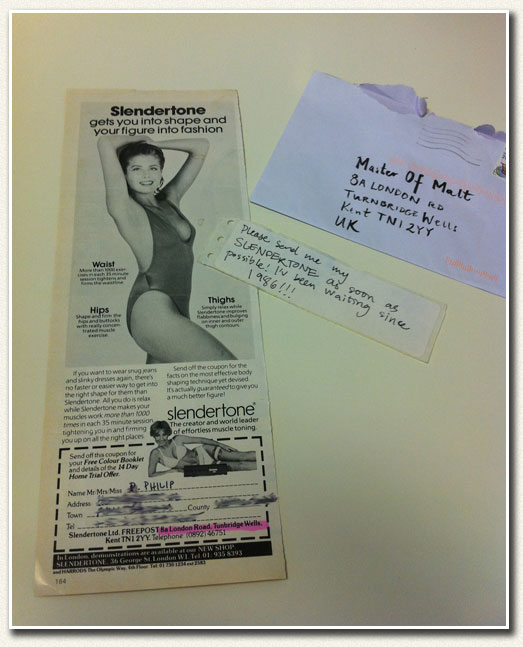 Slendertone
gets you into shape and
your figure into fashion
Waist
More than 1000 exer-
cises in each 35 minute
session tightens and
firms the waistline.
Hips
Shape and firm the
hips and buttocks
with really concen-
trated muscle
exercise.
Thighs
Simply relax while
Slendertone improves
flabbiness and bulging
on inner and outer
thigh contours.
If you want to wear snug jeans
and slinky dresses again, there's
no faster or easier way to get into
the right shape for them than
Slendertone. All you do is relax
while Slendertone makes your
muscles work more than 1000
times in each 35 minute session
tightening you in and firming
you up on all the right places
Send off the coupon for the
facts on the most effective body
shaping technique yet devised.
It's actually guaranteed to give you
a much better figure!
slendertone®
The creator and world leader
of effortless muscle toning.
Send off this coupon for
your Free Colour Booklet
and details of the 14 Day
Home Trial Offer.
Name Mr/Mrs/Miss P. PHILIP
Address
Town County
Tel
Slendertone Ltd. FREEPOST 8a London Road, Tunbridge Wells,
Kent TN1 2YY. Telephone (0892) 46751
In London, demonstrations are available at our NEW SHOP
SLENDERTONE, 36 George St London W1. Tel. 01- 935 8393
and HARRODS The Olympic Way, 4th Floor. Tel: 01 730 1234 ext 2583
164
Master Of Malt
8A LONDON RD
TURNBRIDGE Wells
Kent TN1 2YY
UK
Please send me my
SLENDERTONE as soon as
possible! I'v been waiting since
1986!!!